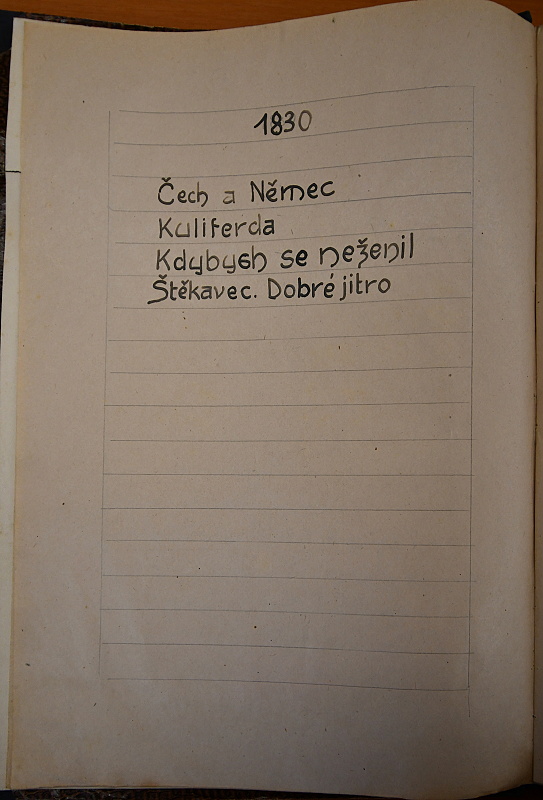 1830
Čech a Němec
Kuliferda
Kdybych se neženil
Štěkavec. Dobré jitro